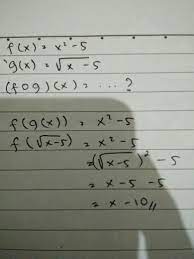 f(x) = x² - 5
g(x) = √x - 5
(fog)(x) = ... ?
f(g(x)) = x² - 5
f(√x-5) = x² - 5
= (√x-5)² - 5
= x - 5 - 5
= x - 10 //